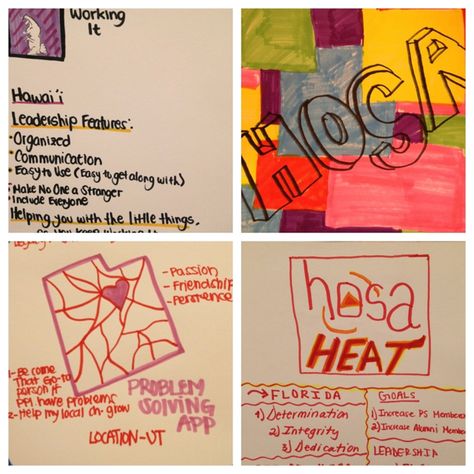 Working
It
Hawai'i
Leadership Features:
•Organized
•Communication
•Easy to Use (Easy to get along with)
•Make No One a Stranger
•Include Everyone
Helping you with the little things,
HOSA
-Passion
-Friendship
-Be come
That Go-to
person if
PPl have Problems
2-Help my local ch. grow
PROBLEM
SOLVING
APP
LOCATION-UT
hosa
HEAT
→FLORIDA
1) Determination
2) Integrity
3) Dedication
GOALS
1) Increase PS Members
2) Increase Alumni Member
LEADERSHIP